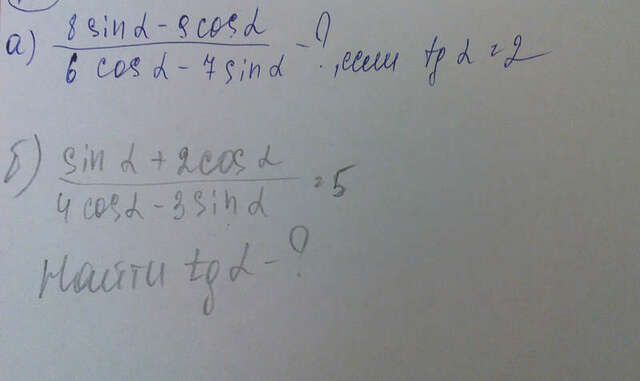 а) (8 sin α - 9 cos α) / (6 cos α - 7 sin α) - ?, если tg α = 2
б) (sin α + 2 cos α) / (4 cos α - 3 sin α) = 5
Найти tg α - ?